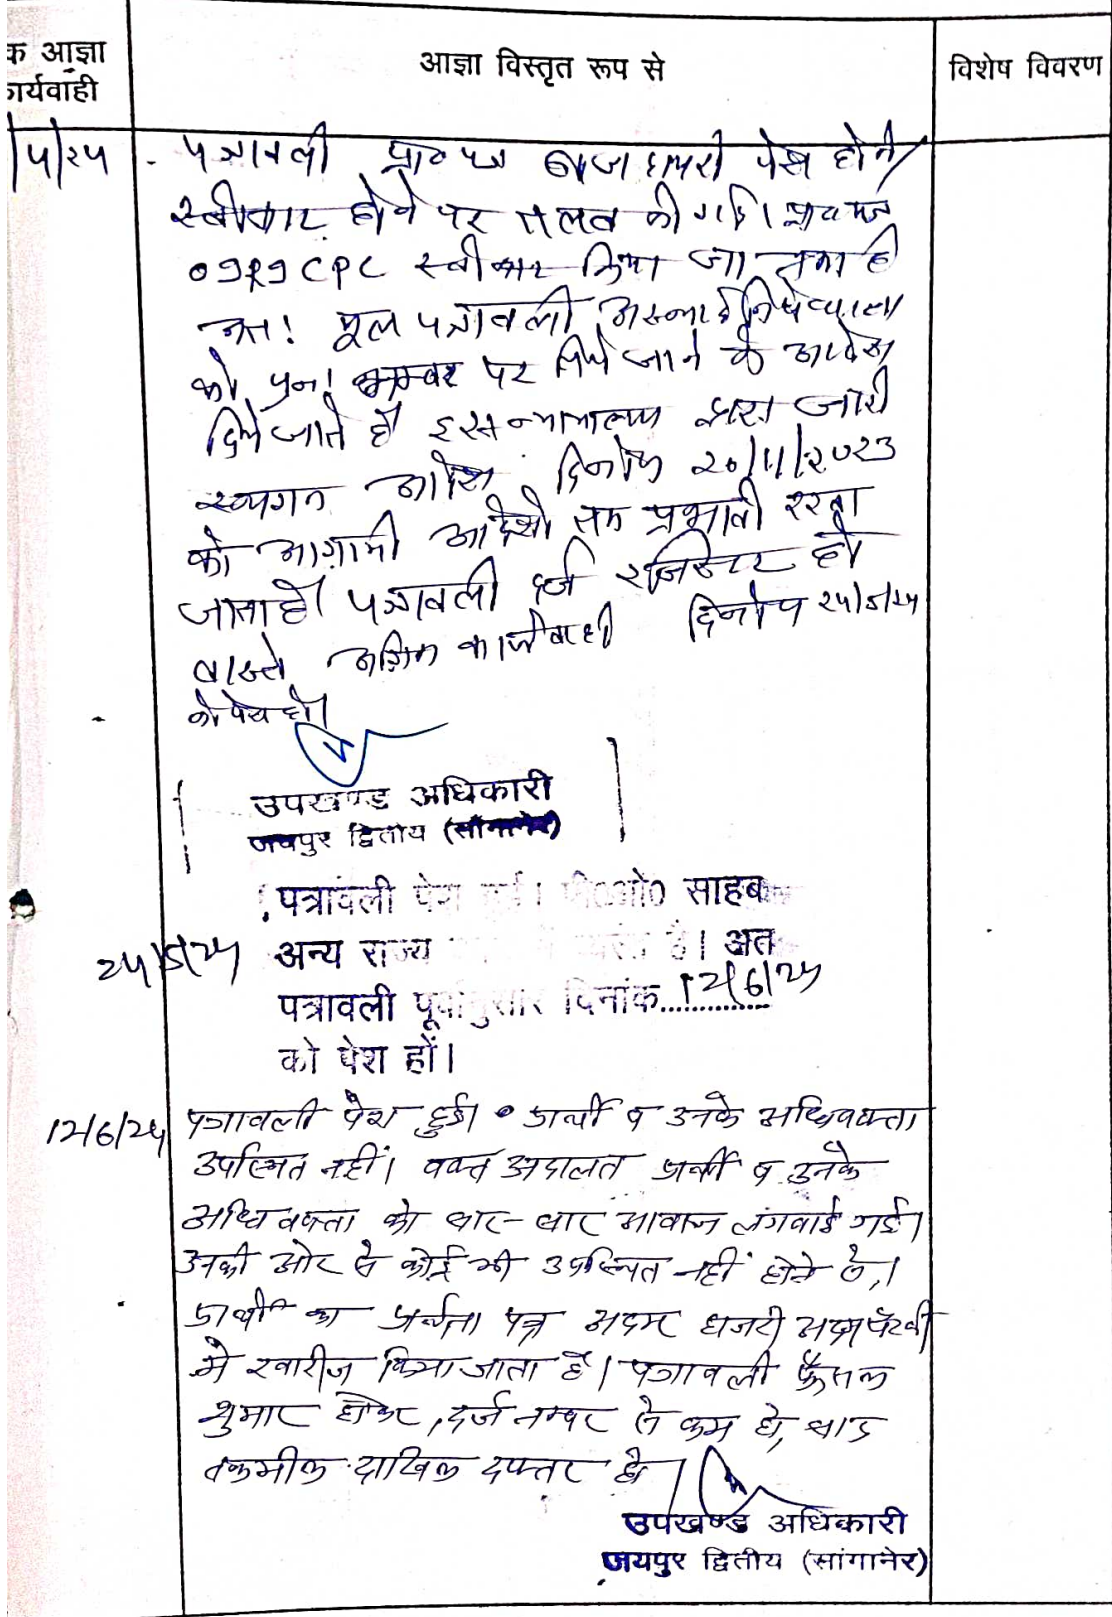 क आज्ञा
ार्यवाही
आज्ञा विस्तृत रूप से
विशेष विवरण
पत्रावली प्रा० पत्र पेश होने
स्वीकार होने पर तलब की गई।
०९R९ CPC स्वीकार किया जा चुका है
अतः मूल पत्रावली अस्थाई निषेधाज्ञा
को पुनः नम्बर पर लिये जाने के आदेश
दिये जाते है इस न्यायालय द्वारा जारी
स्थगन आदेश दिनांक २०/११/२०२३
को आगामी आदेशो तक प्रभावी रखा
जाता है। पत्रावली दर्ज रजिस्टर हो
वास्ते अग्रिम कार्यवाही दिनांक २५/५/२५
को पेश हो।
उपखण्ड अधिकारी
जयपुर द्वितीय (सांगानेर)
पत्रावली पेश हुई। पी०ओ० साहब
२५/५/२५ अन्य राज्य है। अत
पत्रावली पूर्वानुसार दिनांक..12/6/25
को पेश हों।
12/6/25 पत्रावली पेश हुई। प्रार्थी व उनके अधिवक्ता
उपस्थित नहीं। वक्त अदालत प्रार्थी व उनके
अधिवक्ता को बार-बार आवाज लगवाई गई।
उनकी ओर से कोई भी उपस्थित नहीं होने से,।
प्रार्थी का प्रार्थना पत्र अदम हाजरी अदम पैरवी
में खारीज किया जाता है। पत्रावली फैसल
शुमार होकर, दर्ज नम्बर से कम हो, बाद
तकमील दाखिल दफ्तर हो।
उपखण्ड अधिकारी
जयपुर द्वितीय (सांगानेर)